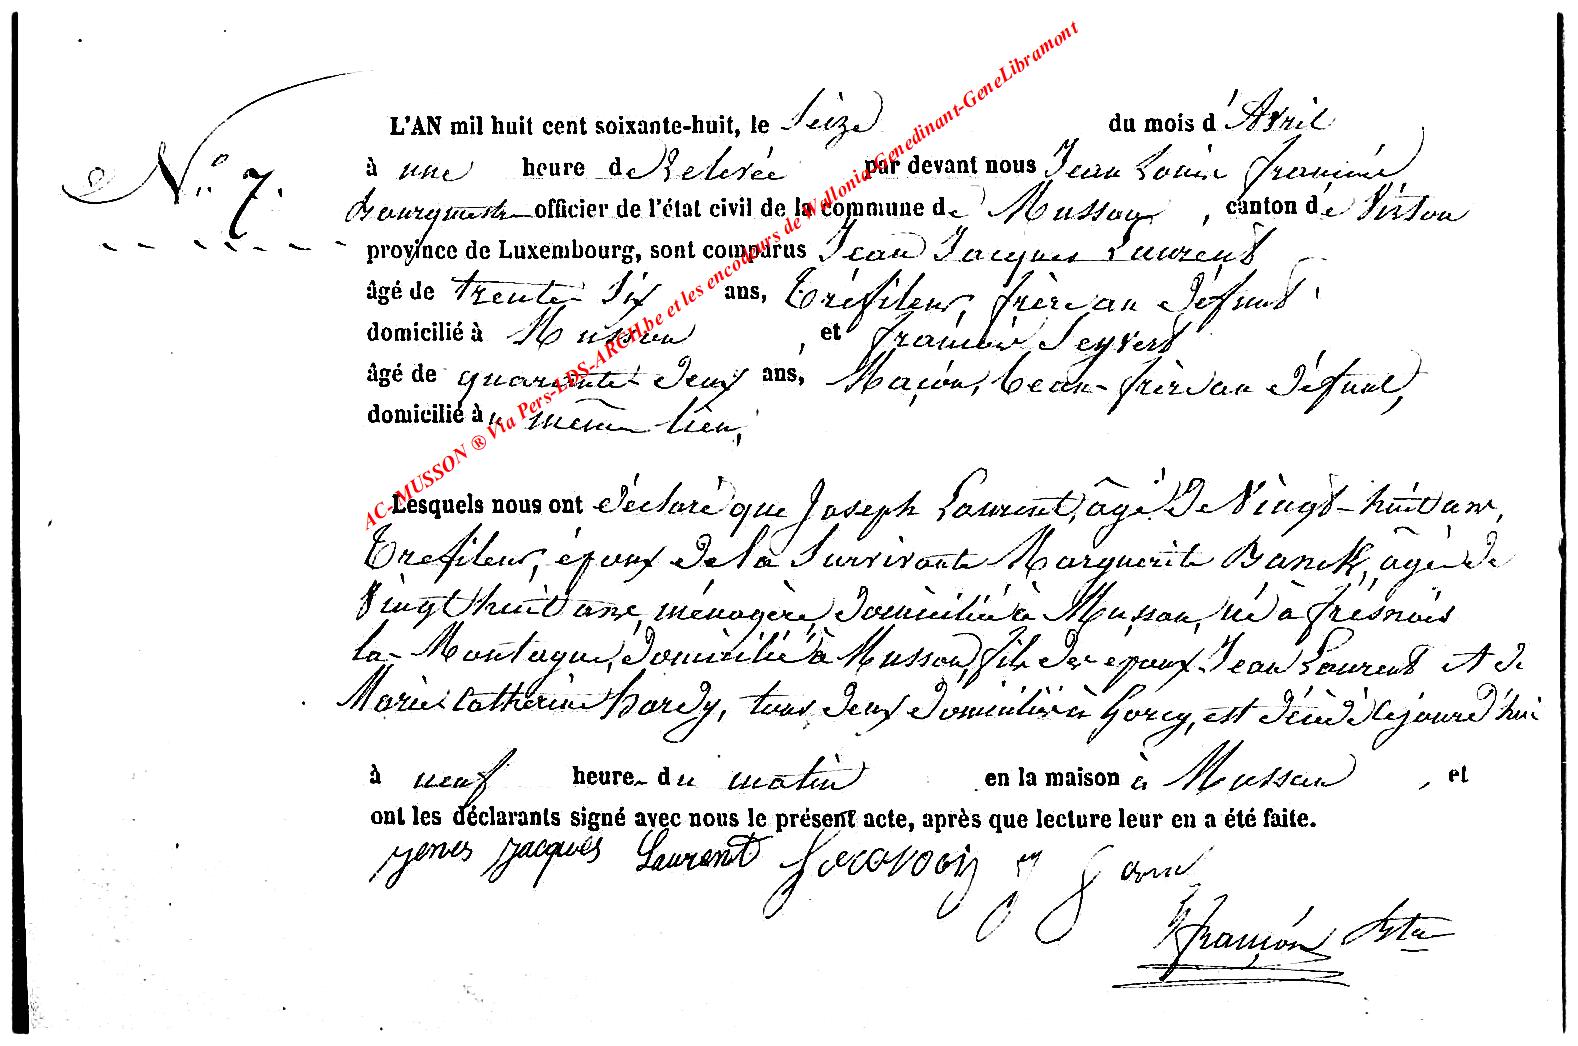 L'AN mil huit cent soixante-huit, le Seize du mois d'Avril
N° 7. à une heure de Relevée par devant nous Jean Louis François
Bourgmestre officier de l'état civil de la commune de Musson, canton de Virton
province de Luxembourg, sont comparus Jean Jacques Laurent
âgé de trente-Six ans, Tréfileur, frère au défunt
domicilié à Musson, et François Seyvert
âgé de quarante-deux ans, Maçon, beau-frère au défunt,
domicilié à même lieu,
AC-MUSSON ® Via Pers-LDS-ARCH.be et les encodeurs de Wallonia-Genedinant-GeneLibramont
Lesquels nous ont déclaré que Joseph Laurent, âgé de Vingt-huit ans,
Tréfileur, époux de la Survivante Marguerite Banck, âgée de
Vingt huit ans, ménagère, domiciliée à Musson, né à frésnois
la-Montagne, domicilié à Musson, fils des époux Jean Laurent et de
Marie Catherine hardy, tous deux domiciliés à Gorcy, est décédé cejourd'hui
à neuf heure du matin en la maison à Musson, et
ont les déclarants signé avec nous le présent acte, après que lecture leur en a été faite.
jenes jacques Laurent
François Btre